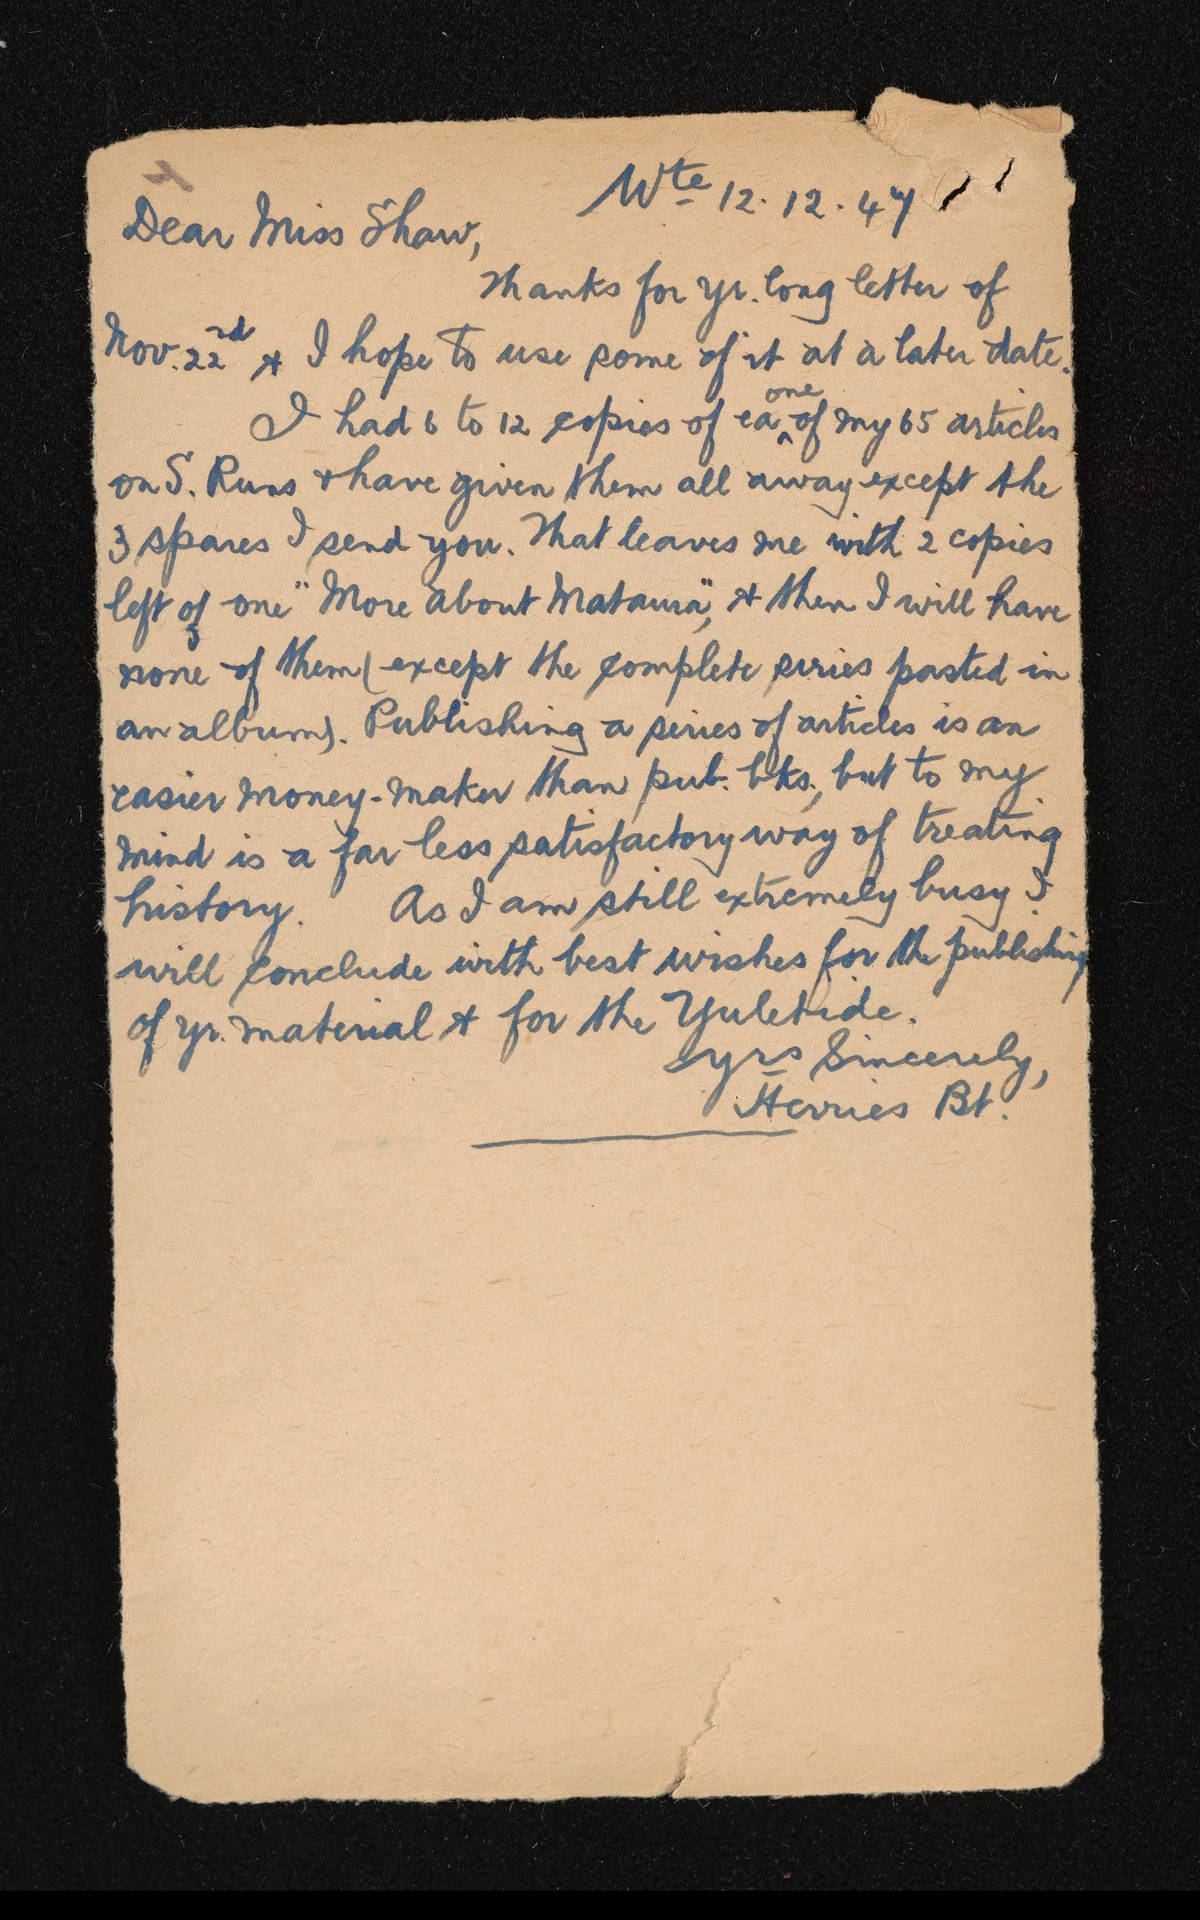 Wte 12.12.47
Dear Miss Shaw,
Thanks for yr. long letter of
Nov. 22nd & I hope to use some of it at a later date.
I had 6 to 12 copies of ea one of my 65 articles
on S. Runs & have given them all away except the
3 spares I send you. That leaves me with 2 copies
left of one "More about Mataura", & then I will have
none of them (except the complete series pasted in
an album). Publishing a series of articles is an
easier money-maker than pub. bks., but to my
mind is a far less satisfactory way of treating
history. As I am still extremely busy I
will conclude with best wishes for the publishing
of yr. material & for the Yuletide.
yrs Sincerely,
Herries Bt.